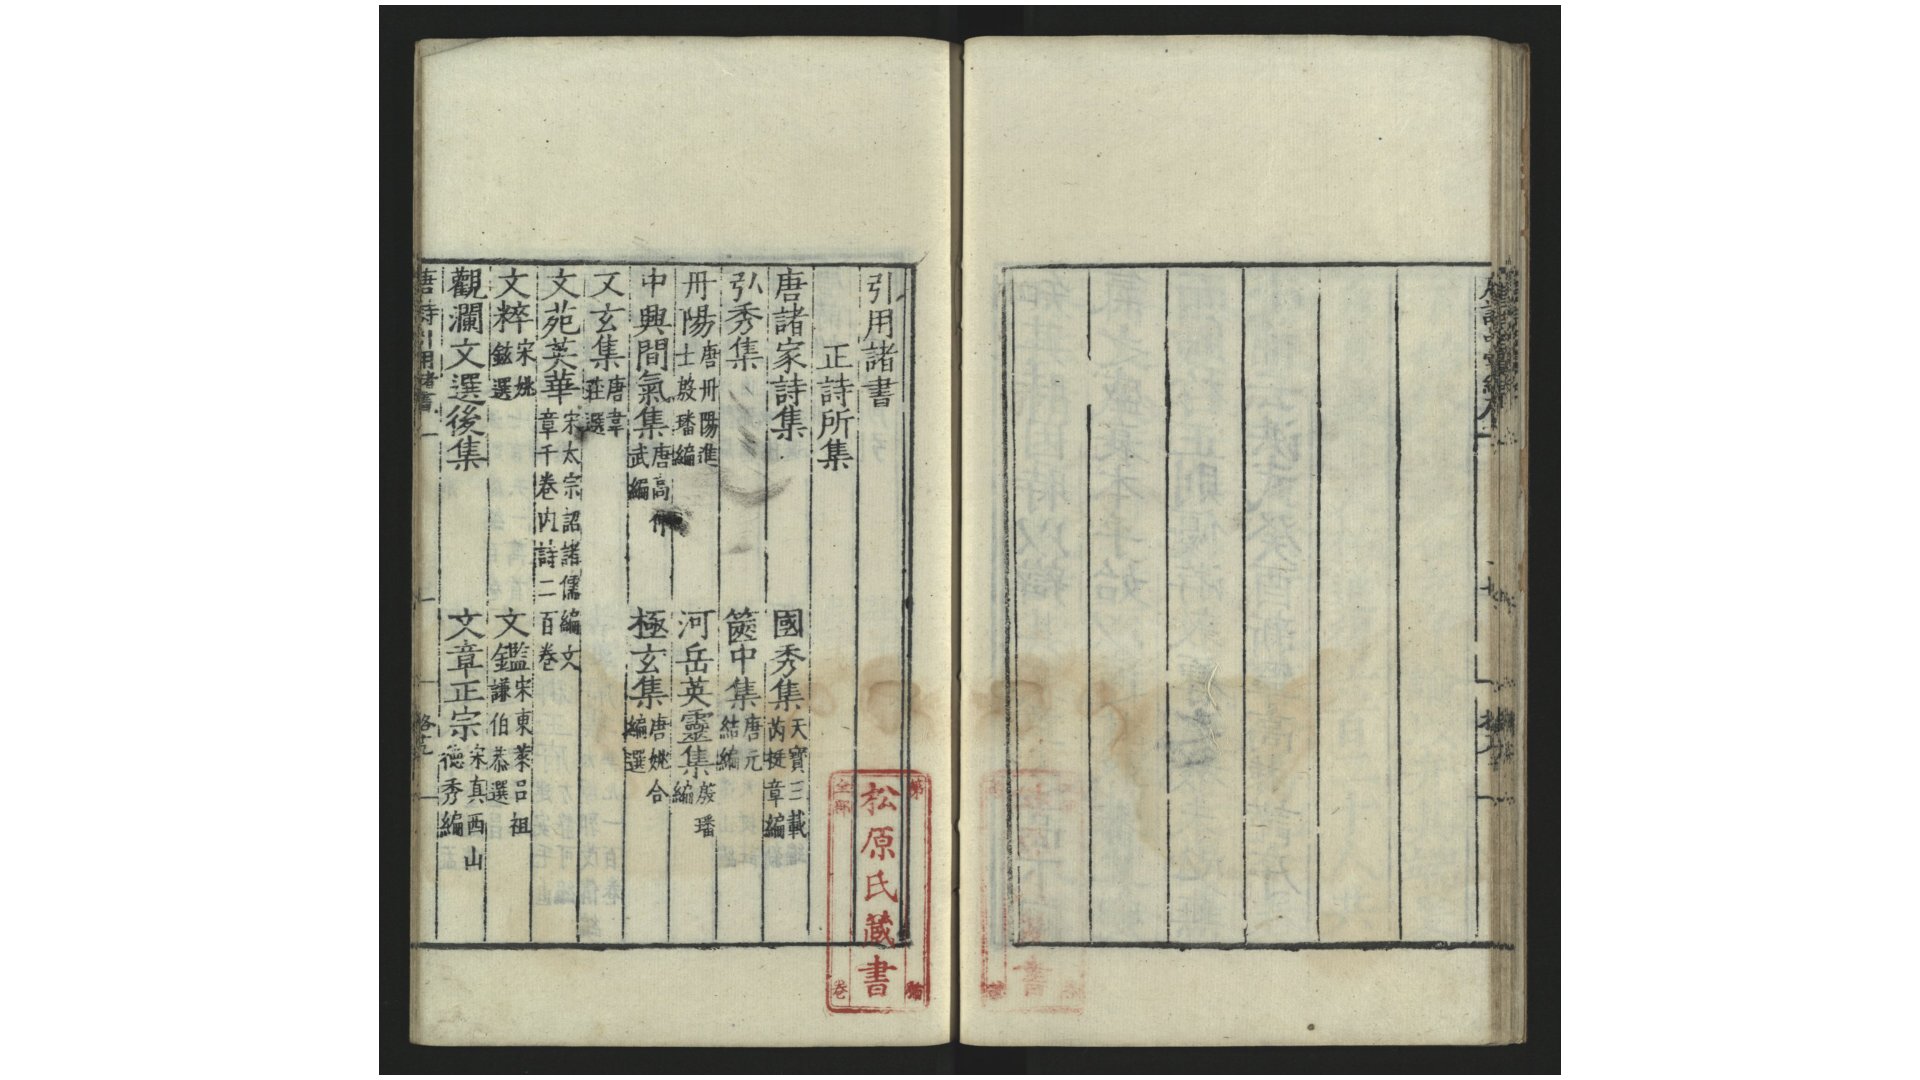 引用諸書
正詩所集
唐諸家詩集 國秀集 天寶三載芮挺章編
弘秀集 篋中集 唐元結編
丹陽集 唐丹陽進士殷璠編 河岳英靈集 殷璠編
中興間氣集 唐高仲武編 極玄集 唐姚合編選
又玄集 唐韋莊選
文苑英華 宋太宗詔諸儒編文章千卷内詩二百卷
文粹 宋姚鉉選 文鑑 宋東萊呂祖謙伯恭選
觀瀾文選後集 文章正宗 宋真西山德秀編
唐詩引用諸書 一
松原氏藏書
第
全部
卷